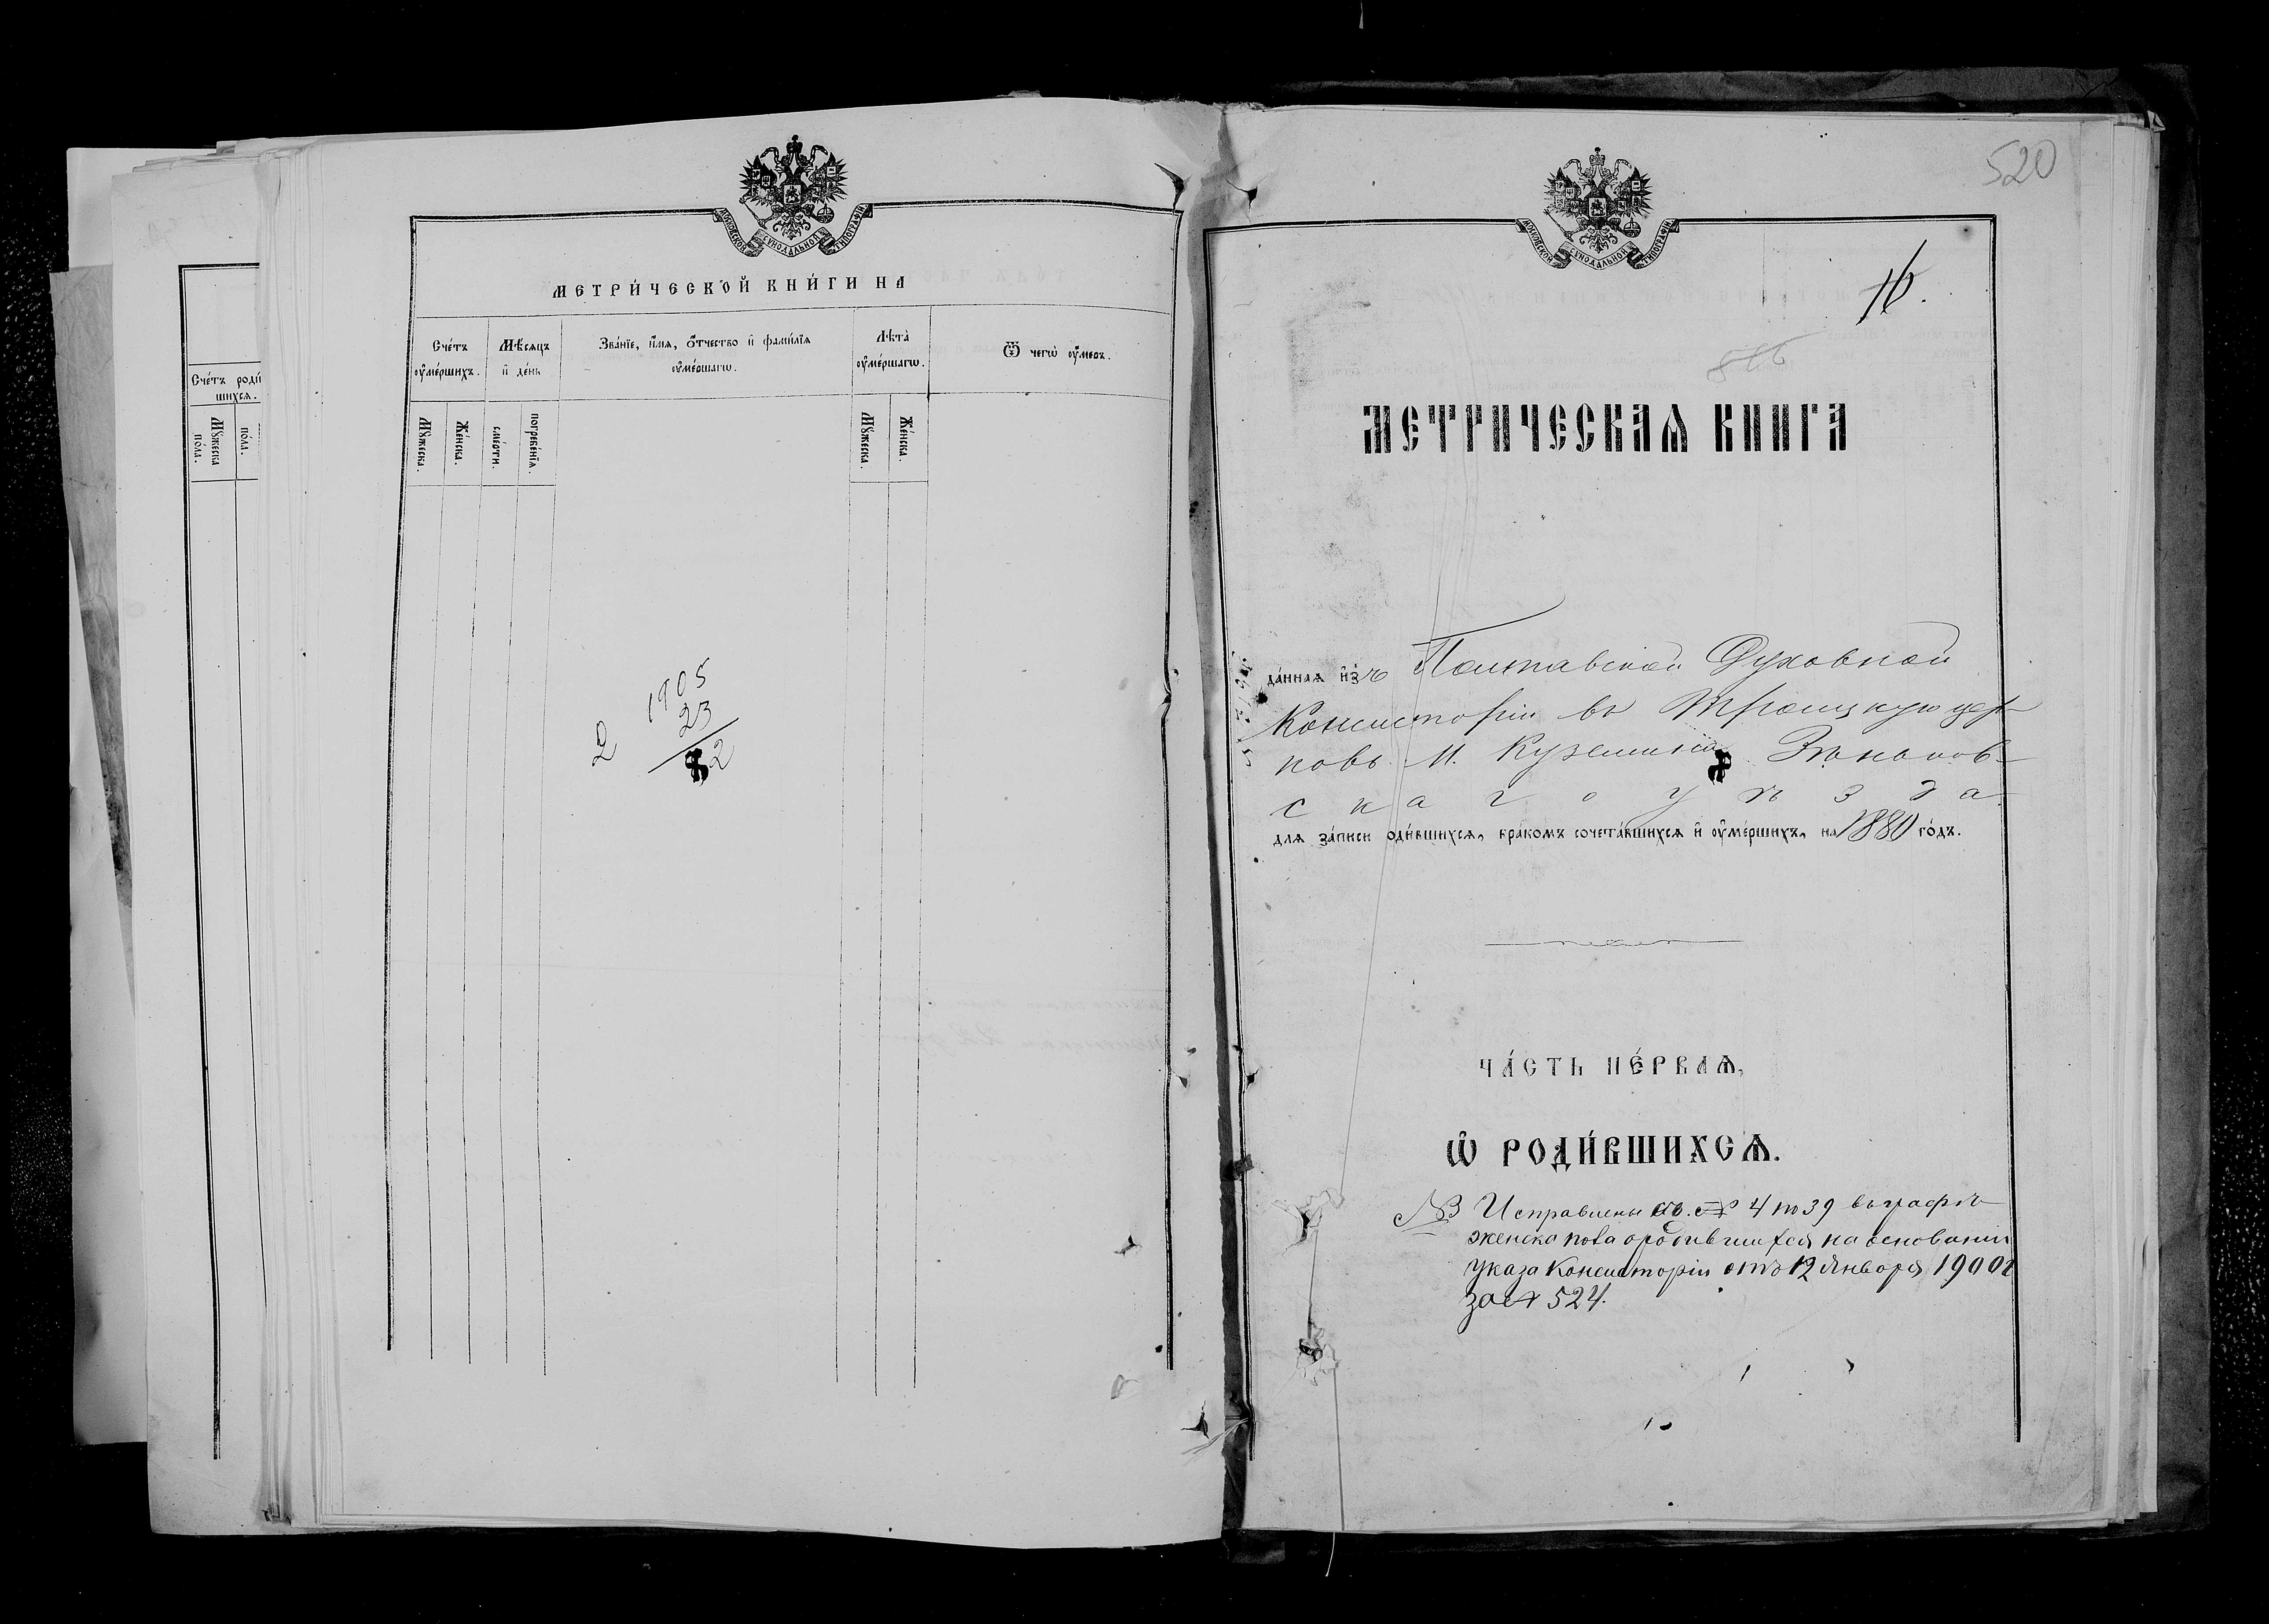 Счéтъ роди
шихсѧ.
Мꙋжеска
пола.
пола.
МОСКОВСКОЙ СѴНОДАЛЬНОЙ ТИПОГРАФІИ
МЕТРИ́ЧЕСКОЙ КНИ́ГИ НА
Счéтъ
ᲂу҆мéршихъ.
Мѣ́сѧцъ
и҆ дéнь
Звáнїе, и҆́мѧ, ѻ҆́тчество и҆ фами́лїѧ
ᲂу҆мéршагѡ.
Лѣ́та
ᲂу҆мéршагѡ.
Ѿ чегѡ̀ ᲂу҆́меръ.
Мꙋ́жеска.
Же́нска.
смéрти.
погребéнїѧ.
Мꙋ́жеска.
Же́нска.
1905
23
2
2
520
МОСКОВСКОЙ СѴНОДАЛЬНОЙ ТИПОГРАФІИ
16.
516
МЕТРИЧЕСКАѦ КНИГА
дáннаѧ и҆зъ Полтавской Духовной
Консисторіи въ Троицкую цер-
ковь м. Куземина Зѣньков-
скаго уѣзда
длѧ зáписи оди́вшихсѧ, бра́комъ сочетáвшихсѧ и҆ ᲂу҆мéршихъ, на 1880 го́дъ.
ЧА́СТЬ ПЕ́РВАѦ,
Ѡ҆ РОДИ́ВШИХСѦ.
NB Исправлены № 4 по 39 въ графѣ
женска пола о родившихся на основаніи
указа Консисторіи отъ 12 Января 1900 г
за № 524.